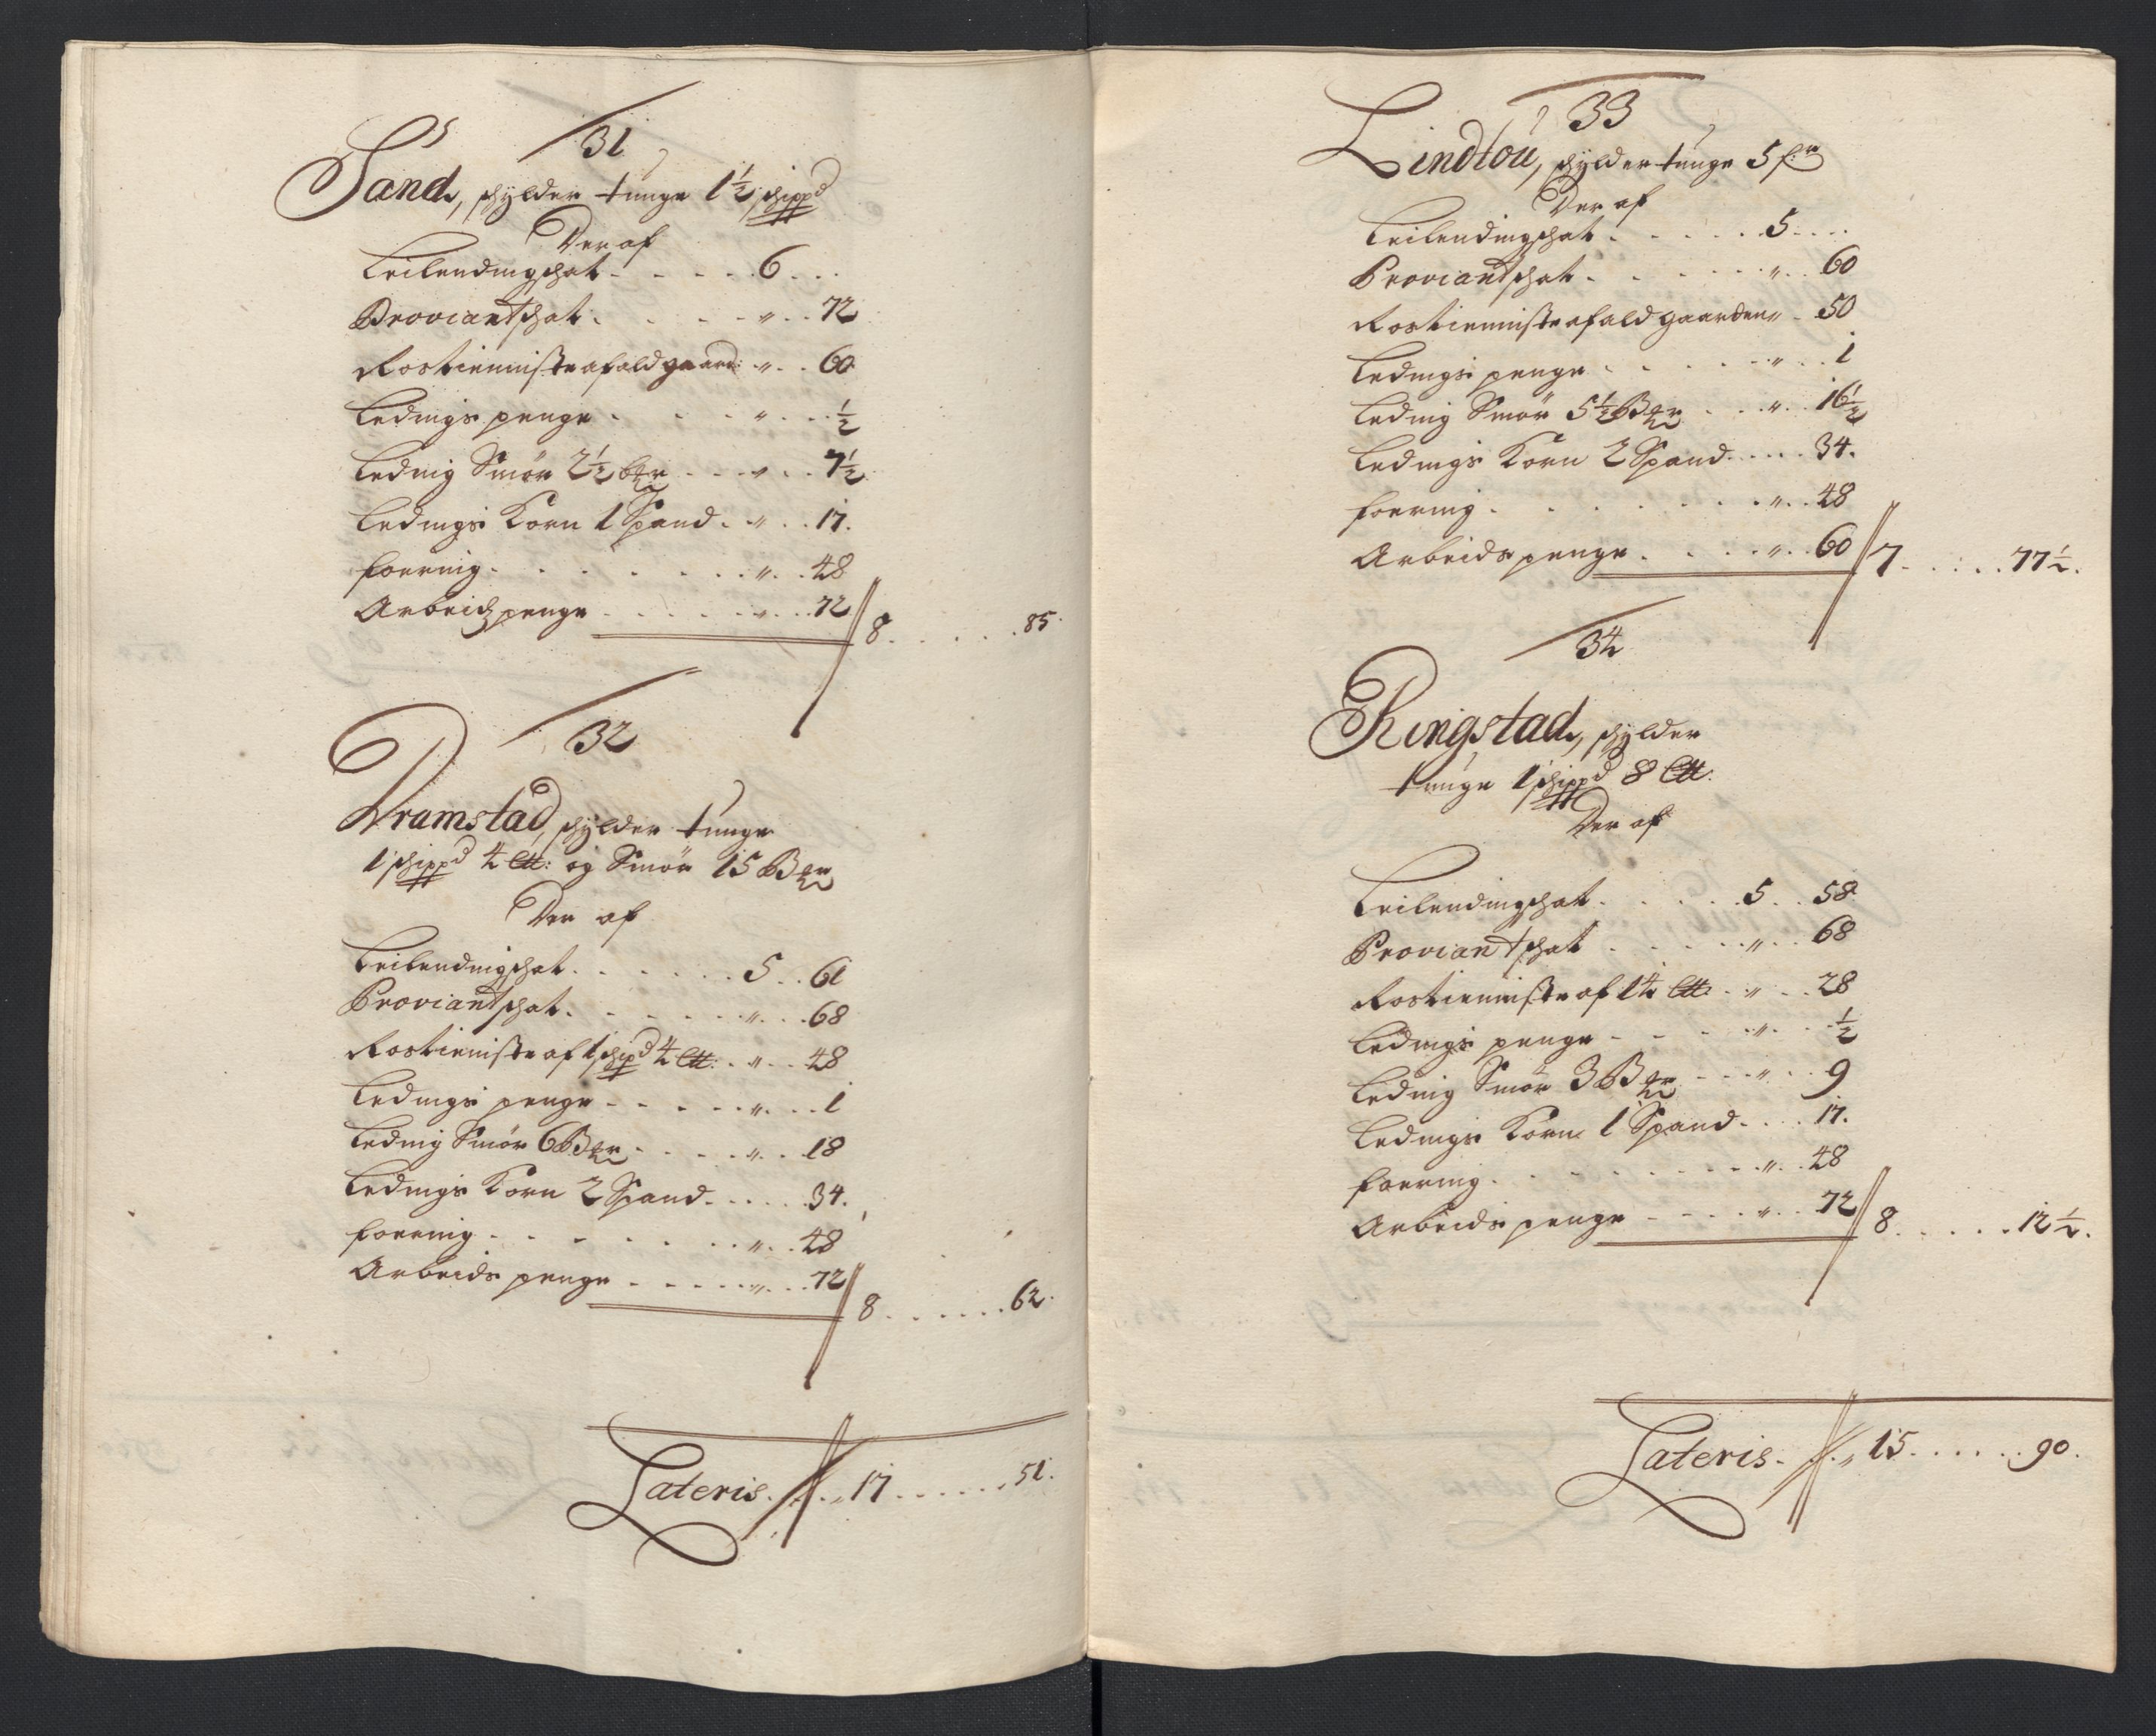 31
Sand, schylder tunge 1½ schippd
Der af
Leilendingschat 6
Proviantschat " 72
Rostienniste af ald gaard: " 60
Ledings penge " ½
Leding Smör 2½ ber " 7½
Ledings Korn 1 Spand " 17.
foering " 48
Arbeidspenge " 72 8 85.
32
Dramstad, schylder tunge
1 schippd 4 Ltt: og Smör 15 Ber
Der af
Leilendingschat 5 61
Proviantschat " 68
Rostienniste af 1 schipd 4 Ltt: " 48
Ledings penge " 1
Leding Smör 6 Ber " 18
Ledings Korn 2 Spand 34.
foering " 48
Arbeids penge " 72 8 62.
Lateris 17 51.
33
Lindtou, schylder tunge 5 fr
Der af
Leilendingschat 5
Proviantschat " 60
Rostienniste af ald gaarden " 50
Ledings penge " 1
Leding Smör 5½ Ber " 16½
Ledings Korn 2 Spand 34.
foering " 48
Arbeids penge " 60 7 77½.
34
Ringstad, schylder
tunge 1 schippd 8 Ltt.
Der af
Leilendingschat 5 58
Proviantschat " 68
Rostienniste af 14 Ltt: " 28
Ledings penge " ½
Leding Smör 3 Ber " 9
Ledings Korn 1 Spand 17.
foering " 48
Arbeids penge " 72 8 12½.
Lateris 15 90.